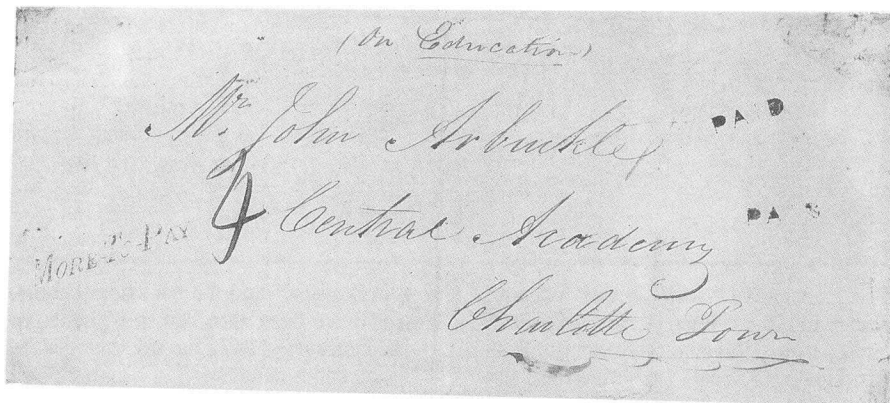 (On Education)
Mr. John Arbuckle
PAID
4
Central Academy
PAID
MORE-TO-PAY
Charlotte Town